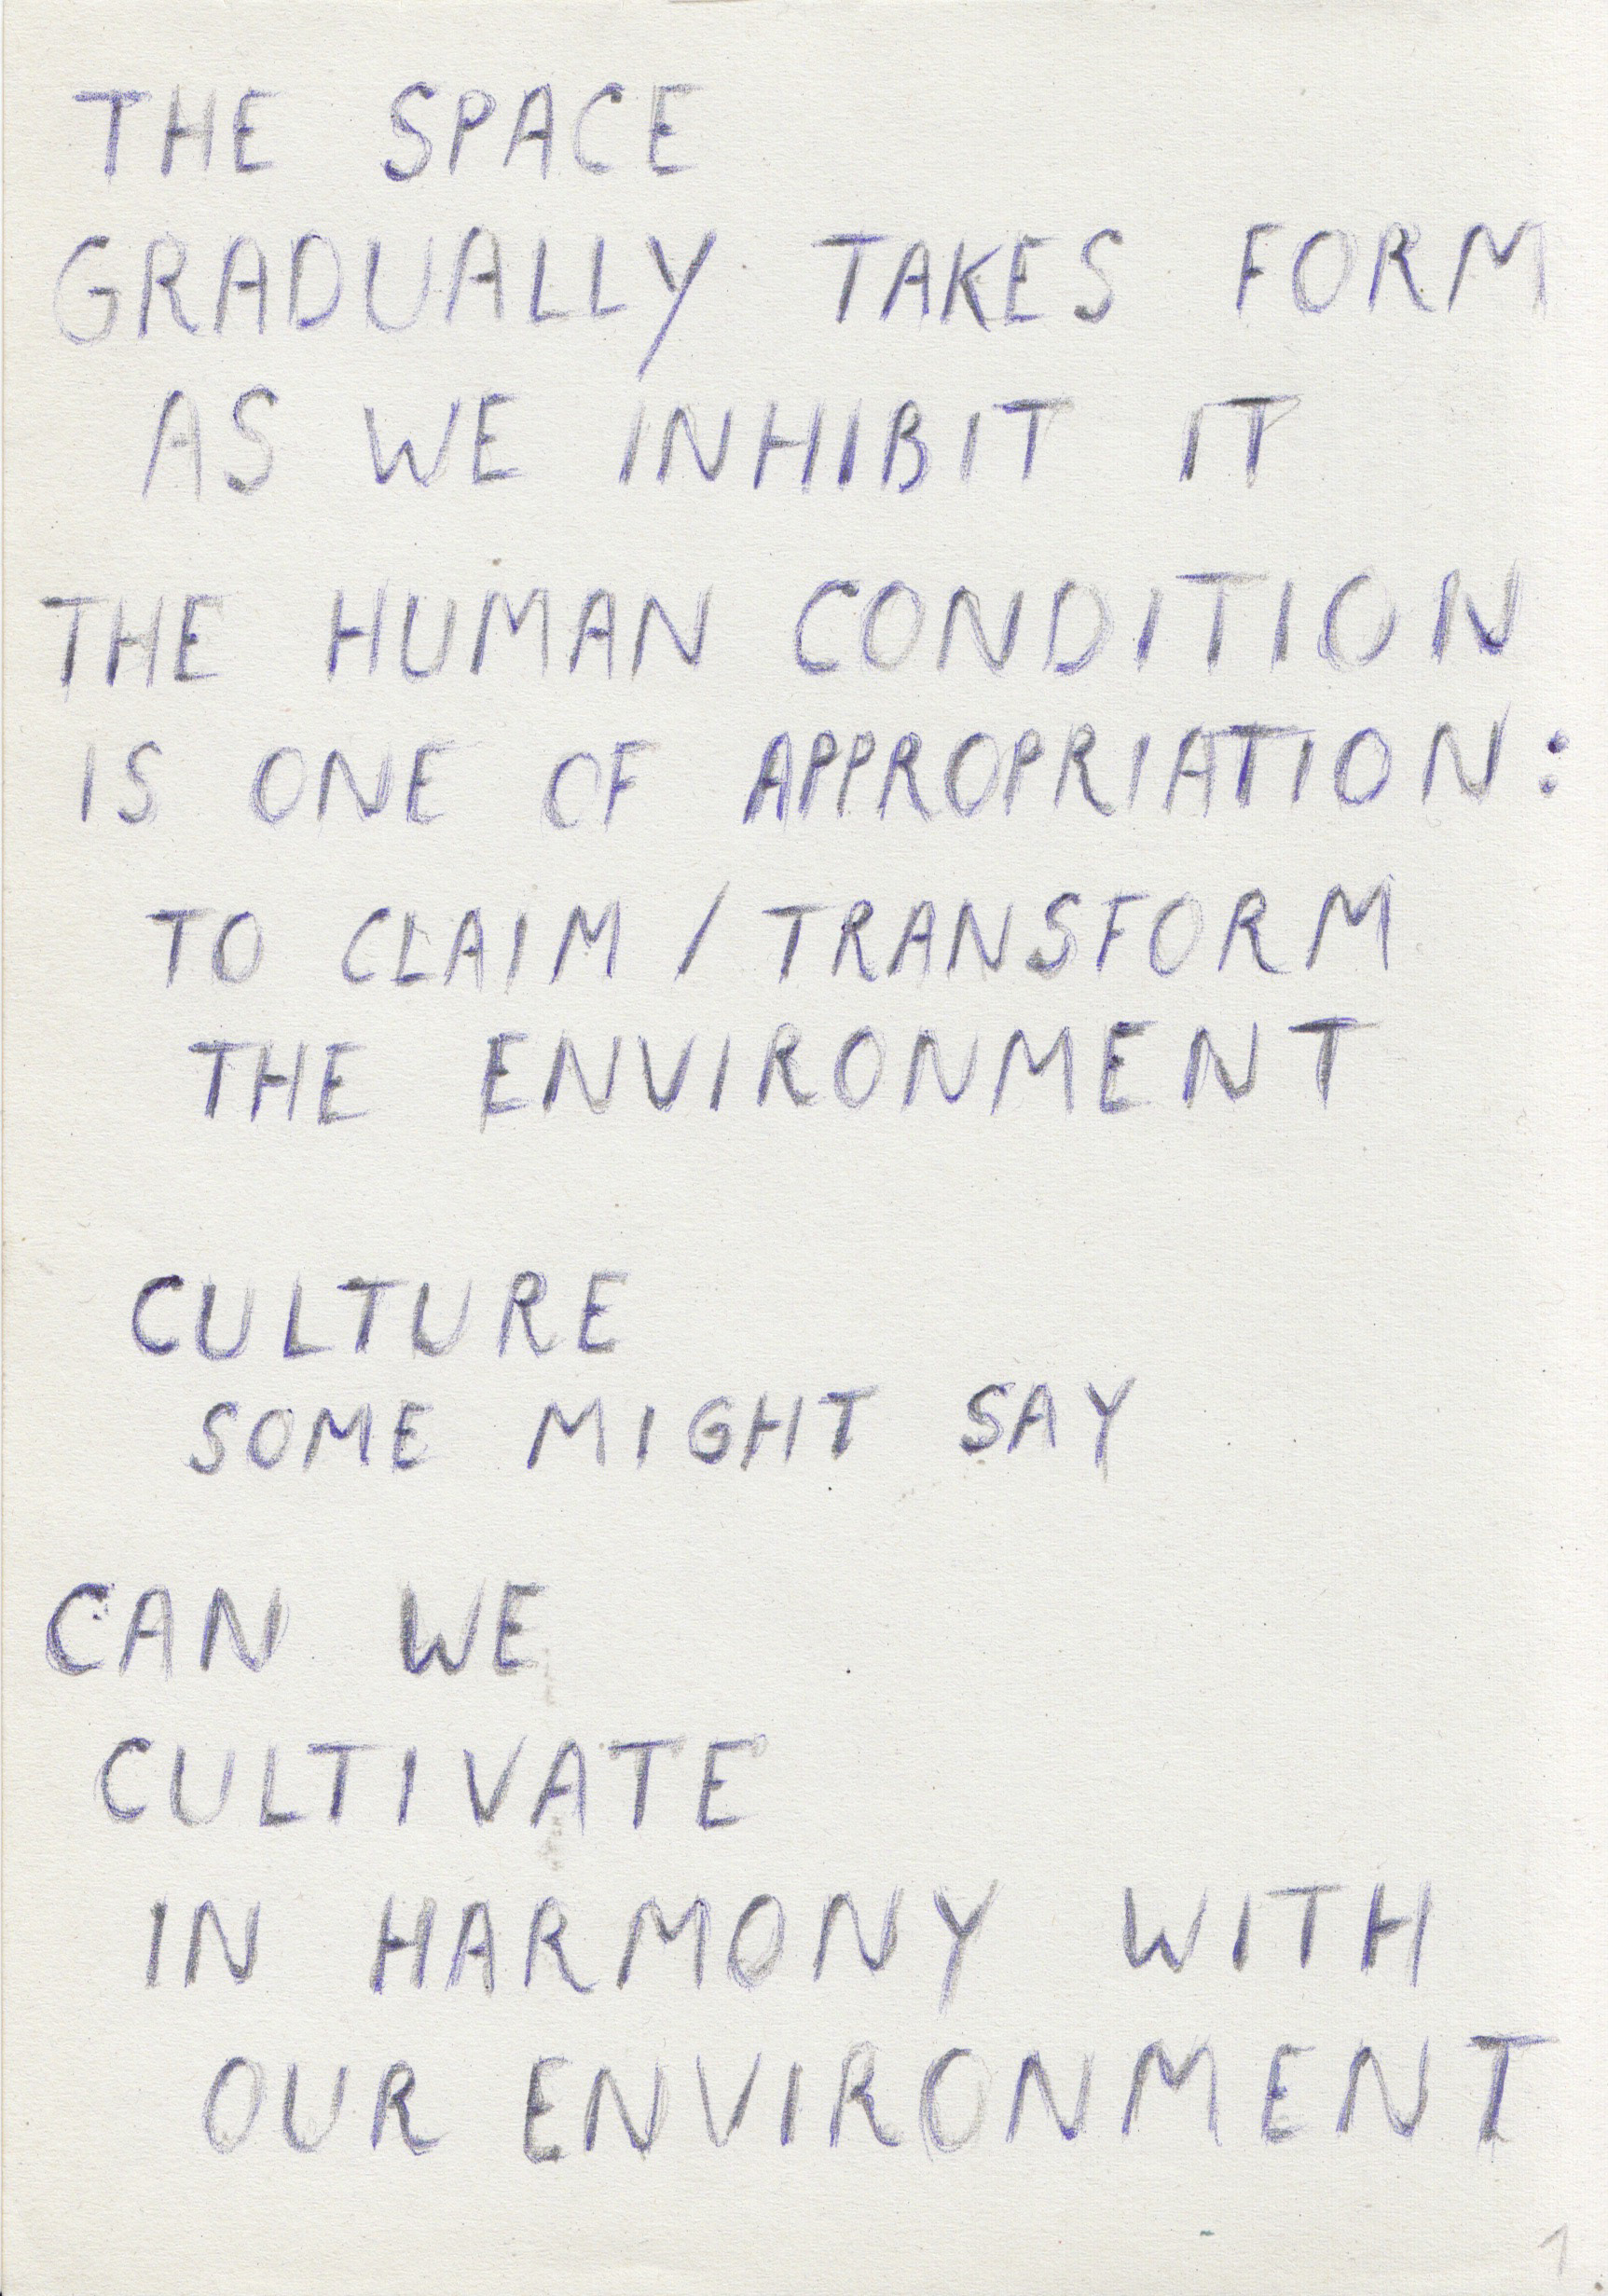 THE SPACE
GRADUALLY TAKES FORM
AS WE INHIBIT IT
THE HUMAN CONDITION
IS ONE OF APPROPRIATION:
TO CLAIM / TRANSFORM
THE ENVIRONMENT
CULTURE
SOME MIGHT SAY
CAN WE
CULTIVATE
IN HARMONY WITH
OUR ENVIRONMENT
1